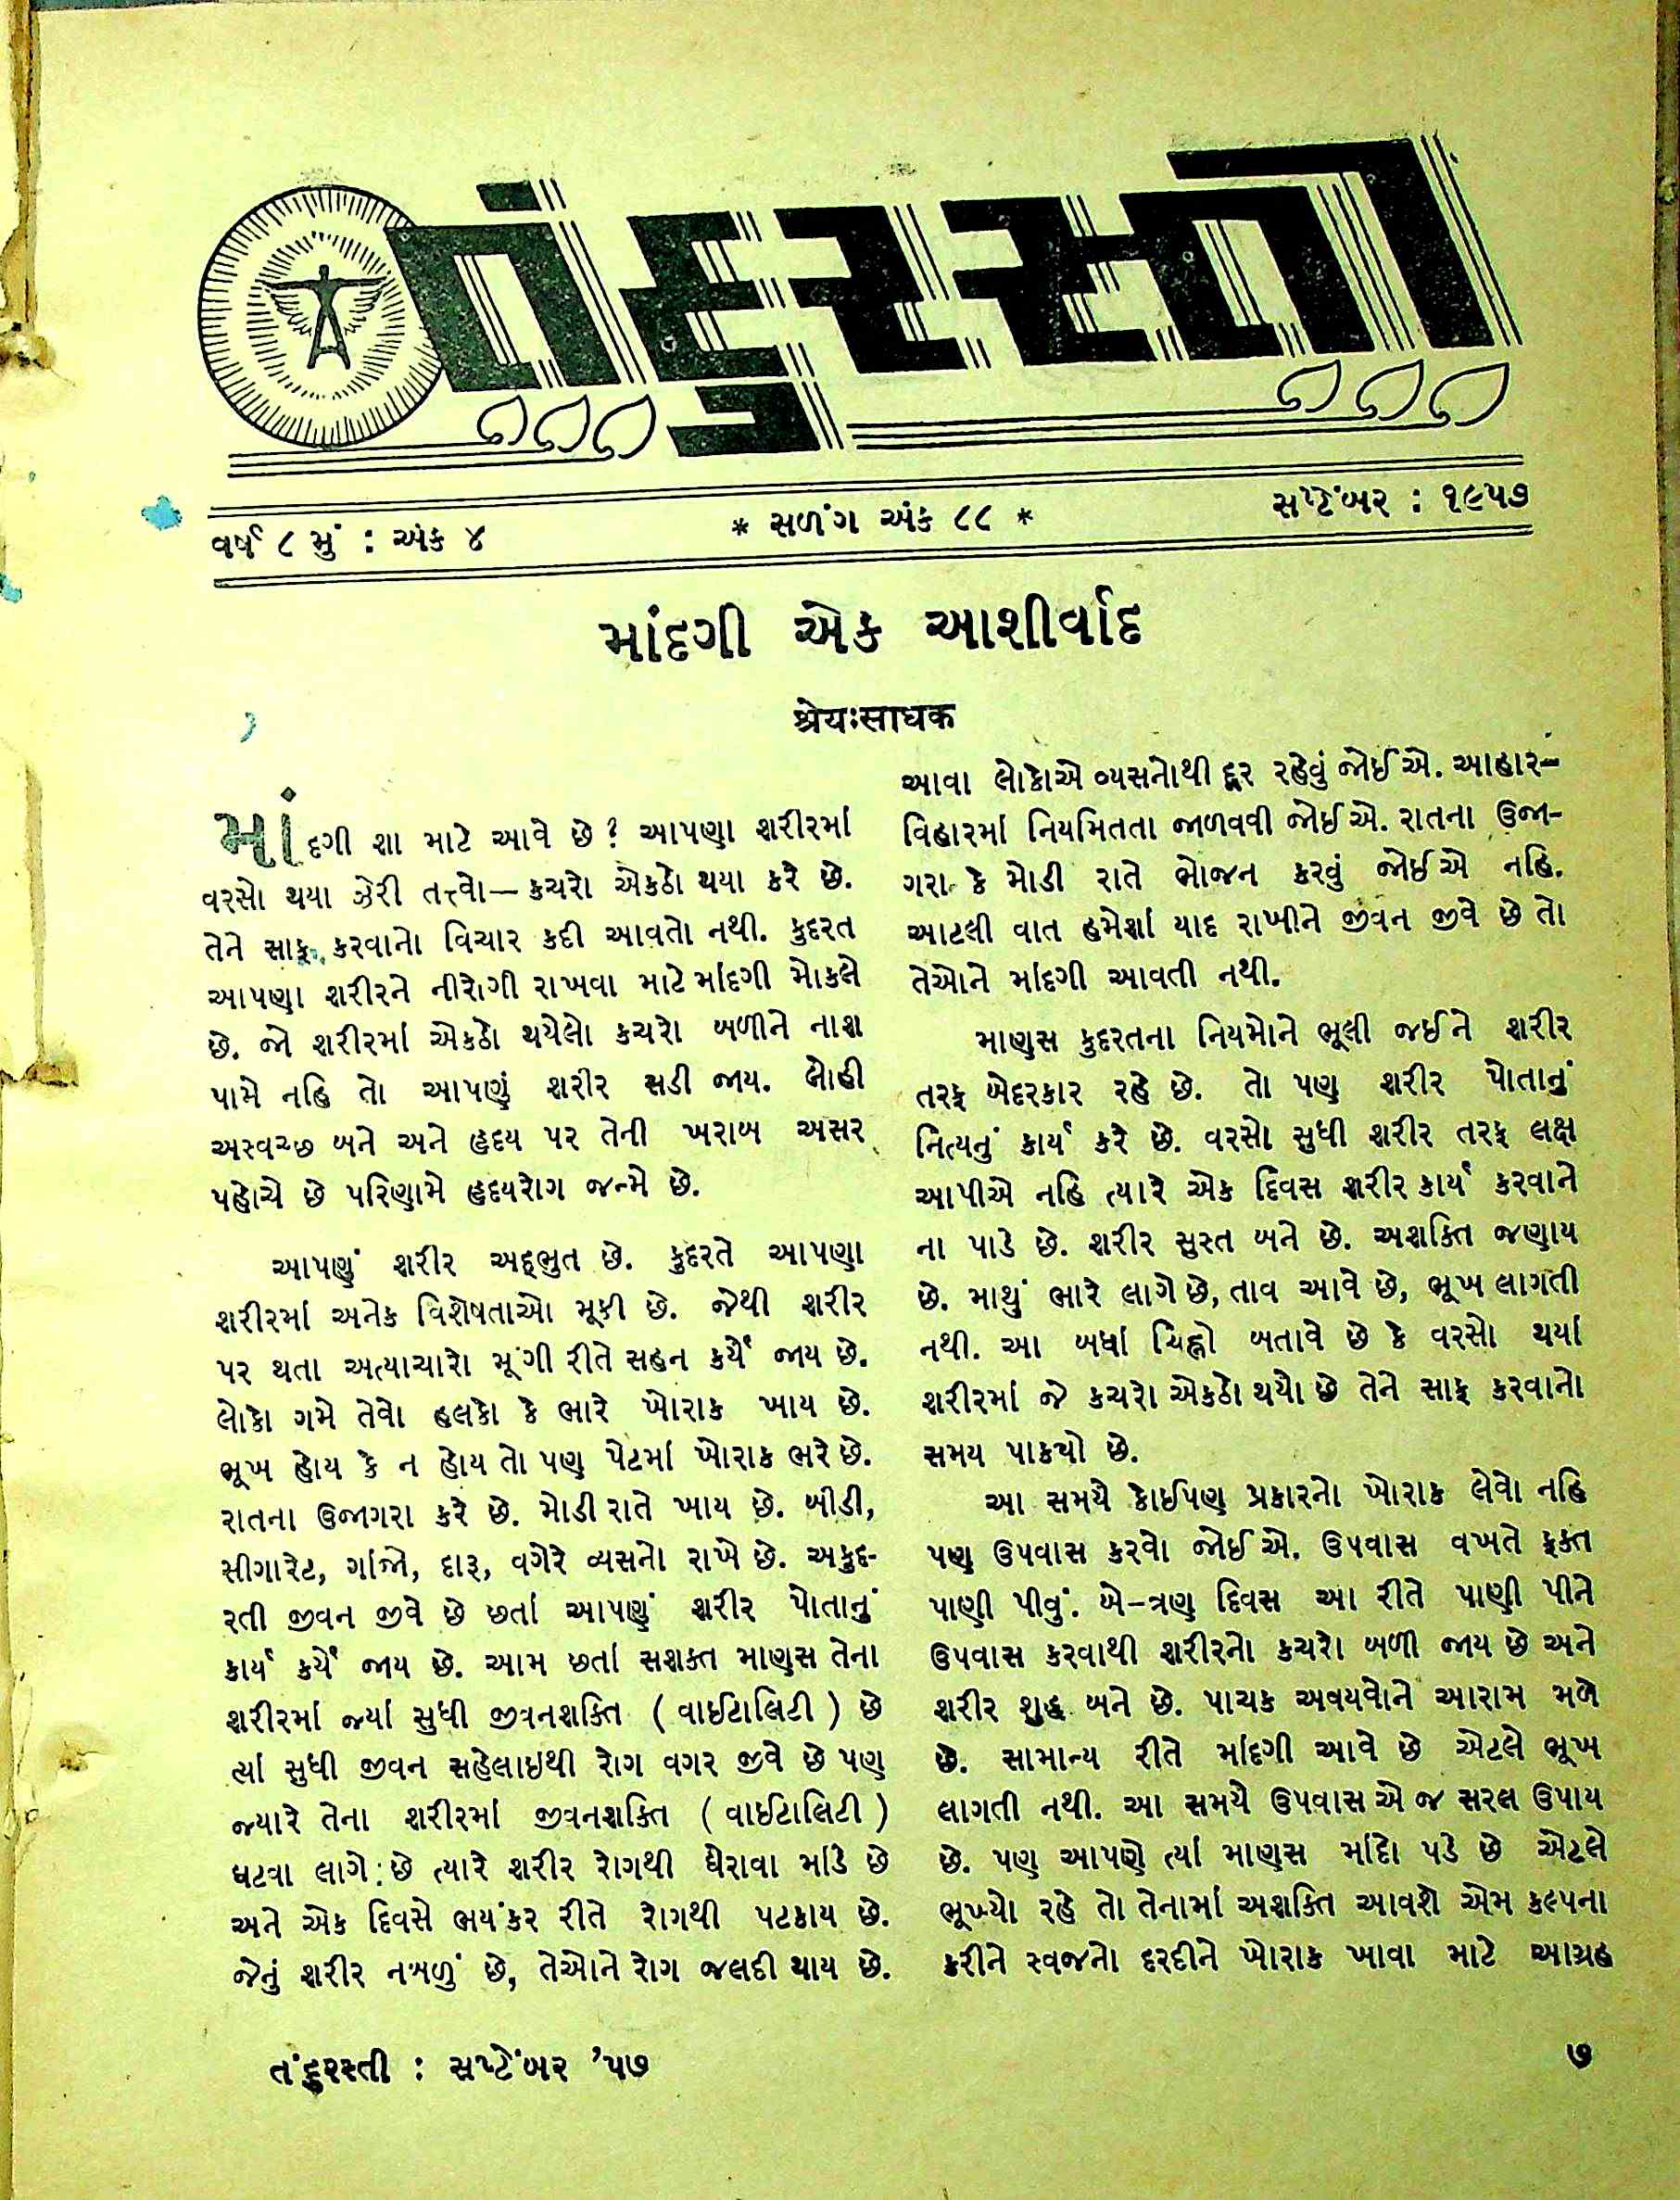 તંદુરસ્તી
વર્ષ ૮ મું : અંક ૪
* સળંગ અંક ૮૮ *
સપ્ટેંબર : ૧૯૫૭
માંદગી એક આશીર્વાદ
શ્રેયઃસાધક
માંદગી શા માટે આવે છે? આપણા શરીરમાં
વરસો થયા ઝેરી તત્ત્વો— કચરો એકઠો થયા કરે છે.
તેને સાફ કરવાનો વિચાર કદી આવતો નથી. કુદરત
આપણા શરીરને નીરોગી રાખવા માટે માંદગી મોકલે
છે. જો શરીરમાં એકઠો થયેલો કચરો બળીને નાશ
પામે નહિ તો આપણું શરીર સડી જાય. લોહી
અસ્વચ્છ બને અને હૃદય પર તેની ખરાબ અસર
પહોચે છે પરિણામે હૃદયરોગ જન્મે છે.
આપણું શરીર અદ્ભુત છે. કુદરતે આપણા
શરીરમાં અનેક વિશેષતાઓ મૂકી છે. જેથી શરીર
પર થતા અત્યાચારો મૂંગી રીતે સહન કર્યે જાય છે.
લોકો ગમે તેવો હલકો કે ભારે ખોરાક ખાય છે.
ભૂખ હોય કે ન હોય તો પણ પેટમાં ખોરાક ભરે છે.
રાતના ઉજાગરા કરે છે. મોડી રાતે ખાય છે. બીડી,
સીગારેટ, ગાંજો, દારૂ, વગેરે વ્યસનો રાખે છે. અકુદ-
રતી જીવન જીવે છે છતાં આપણું શરીર પોતાનું
કાર્ય કર્યે જાય છે. આમ છતાં સશક્ત માણસ તેના
શરીરમાં જ્યાં સુધી જીવનશક્તિ ( વાઈટાલિટી ) છે
ત્યાં સુધી જીવન સહેલાઇથી રોગ વગર જીવે છે પણ
જ્યારે તેના શરીરમાં જીવનશક્તિ ( વાઈટાલિટી )
ઘટવા લાગે છે ત્યારે શરીર રોગથી ઘેરાવા માંડે છે
અને એક દિવસે ભયંકર રીતે રોગથી પટકાય છે.
જેનું શરીર નબળું છે, તેઓને રોગ જલદી થાય છે.
આવા લોકોએ વ્યસનોથી દૂર રહેવું જોઈએ. આહાર-
વિહારમાં નિયમિતતા જાળવવી જોઈએ. રાતના ઉજા-
ગરા કે મોડી રાતે ભોજન કરવું જોઈએ નહિ.
આટલી વાત હમેશાં યાદ રાખીને જીવન જીવે છે તો
તેઓને માંદગી આવતી નથી.
માણસ કુદરતના નિયમોને ભૂલી જઈને શરીર
તરફ બેદરકાર રહે છે. તો પણ શરીર પોતાનું
નિત્યનું કાર્ય કરે છે. વરસો સુધી શરીર તરફ લક્ષ
આપીએ નહિ ત્યારે એક દિવસ શરીર કાર્ય કરવાને
ના પાડે છે. શરીર સુસ્ત બને છે. અશક્તિ જણાય
છે. માથું ભારે લાગે છે, તાવ આવે છે, ભૂખ લાગતી
નથી. આ બધાં ચિહ્નો બતાવે છે કે વરસો થયાં
શરીરમાં જે કચરો એકઠો થયો છે તેને સાફ કરવાનો
સમય પાકયો છે.
આ સમયે કોઈપણ પ્રકારનો ખોરાક લેવો નહિ
પણ ઉપવાસ કરવો જોઈએ. ઉપવાસ વખતે ફક્ત
પાણી પીવું. બે-ત્રણ દિવસ આ રીતે પાણી પીને
ઉપવાસ કરવાથી શરીરનો કચરો બળી જાય છે અને
શરીર શુદ્ધ બને છે. પાચક અવયવોને આરામ મળે
છે. સામાન્ય રીતે માંદગી આવે છે એટલે ભૂખ
લાગતી નથી. આ સમયે ઉપવાસ એ જ સરલ ઉપાય
છે. પણ આપણે ત્યાં માણસ માંદો પડે છે એટલે
ભૂખ્યો રહે તો તેનામાં અશક્તિ આવશે એમ કલ્પના
કરીને સ્વજનો દરદીને ખોરાક ખાવા માટે આગ્રહ
તંદુરસ્તી : સપ્ટેંબર '૫૭
૭